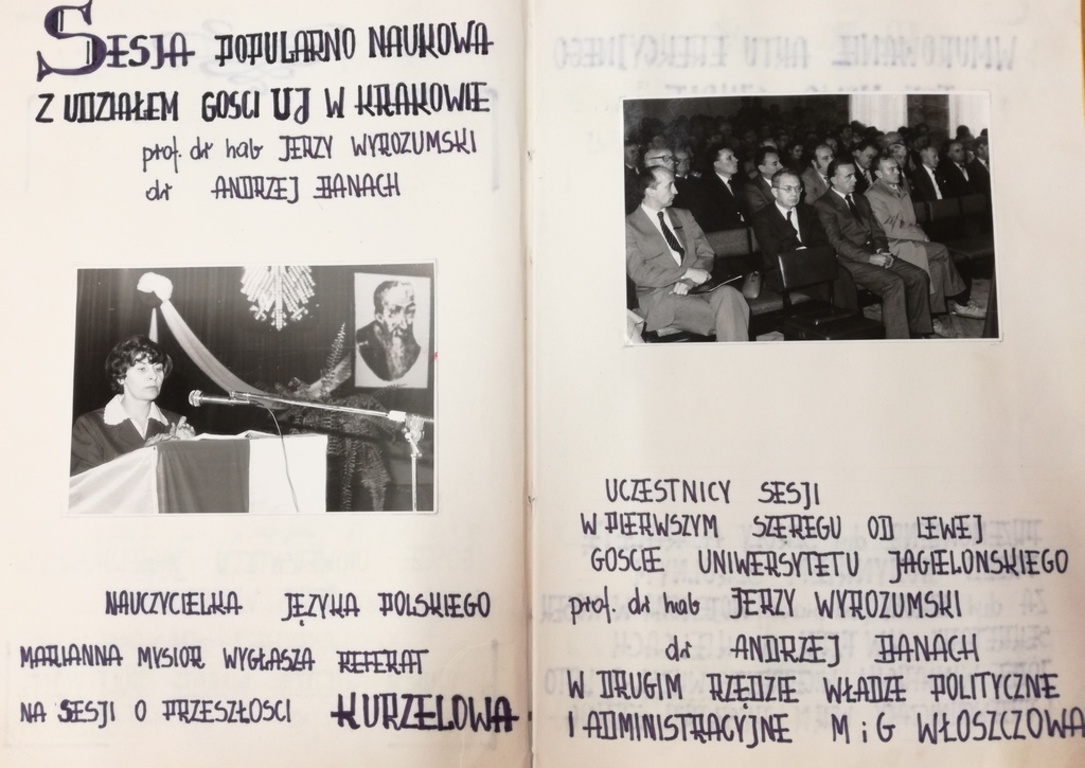 SESJA POPULARNO NAUKOWA
Z UDZIAŁEM GOSCI UJ W KRAKOWIE
prof. dr hab JERZY WYROZUMSKI
dr ANDRZEJ BANACH
NAUCZYCIELKA JĘZYKA POLSKIEGO
MARIANNA MYSIOR WYGŁASZA REFERAT
NA SESJI O PRZESZŁOSCI KURZELOWA
UCZESTNICY SESJI
W PIERWSZYM SZEREGU OD LEWEJ
GOSCIE UNIWERSYTETU JAGIELONSKIEGO
prof. dr hab JERZY WYROZUMSKI
dr ANDRZEJ BANACH
W DRUGIM RZĘDZIE WŁADZE POLITYCZNE
I ADMINISTRACYJNE M i G WŁOSZCZOWA